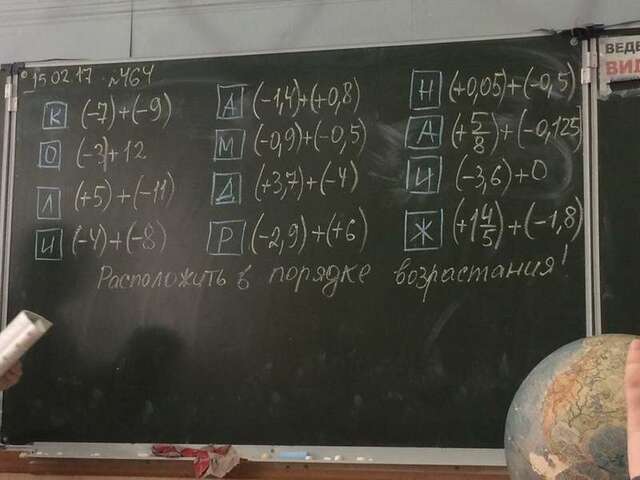 15.02.17 №464
К (-7)+(-9)
О (-3)+12
Л (+5)+(-11)
И (-4)+(-8)
А (-1,4)+(+0,8)
М (-0,9)+(-0,5)
Д (+3,7)+(-4)
Р (-2,9)+(+6)
Н (+0,05)+(-0,5)
А (+5/8)+(-0,125)
И (-3,6)+0
Ж (+1 4/5)+(-1,8)
Расположить в порядке возрастания!
ВЕДЕ
ВИД